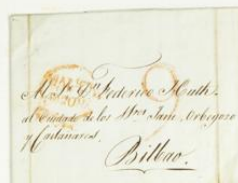 M. S. Dn. Federico Huth.
al Cuidado de los Sres Jane, Orbegozo
y Cailanares.
Bilbao.
9